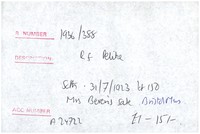 R NUMBER 1936/388
DESCRIPTION R.f. Pelike
Soths. 31/7/1923 Lt 150
Mrs Beven's sale Bristol Mus
ACC NUMBER
A 24722 £1 - 15/-